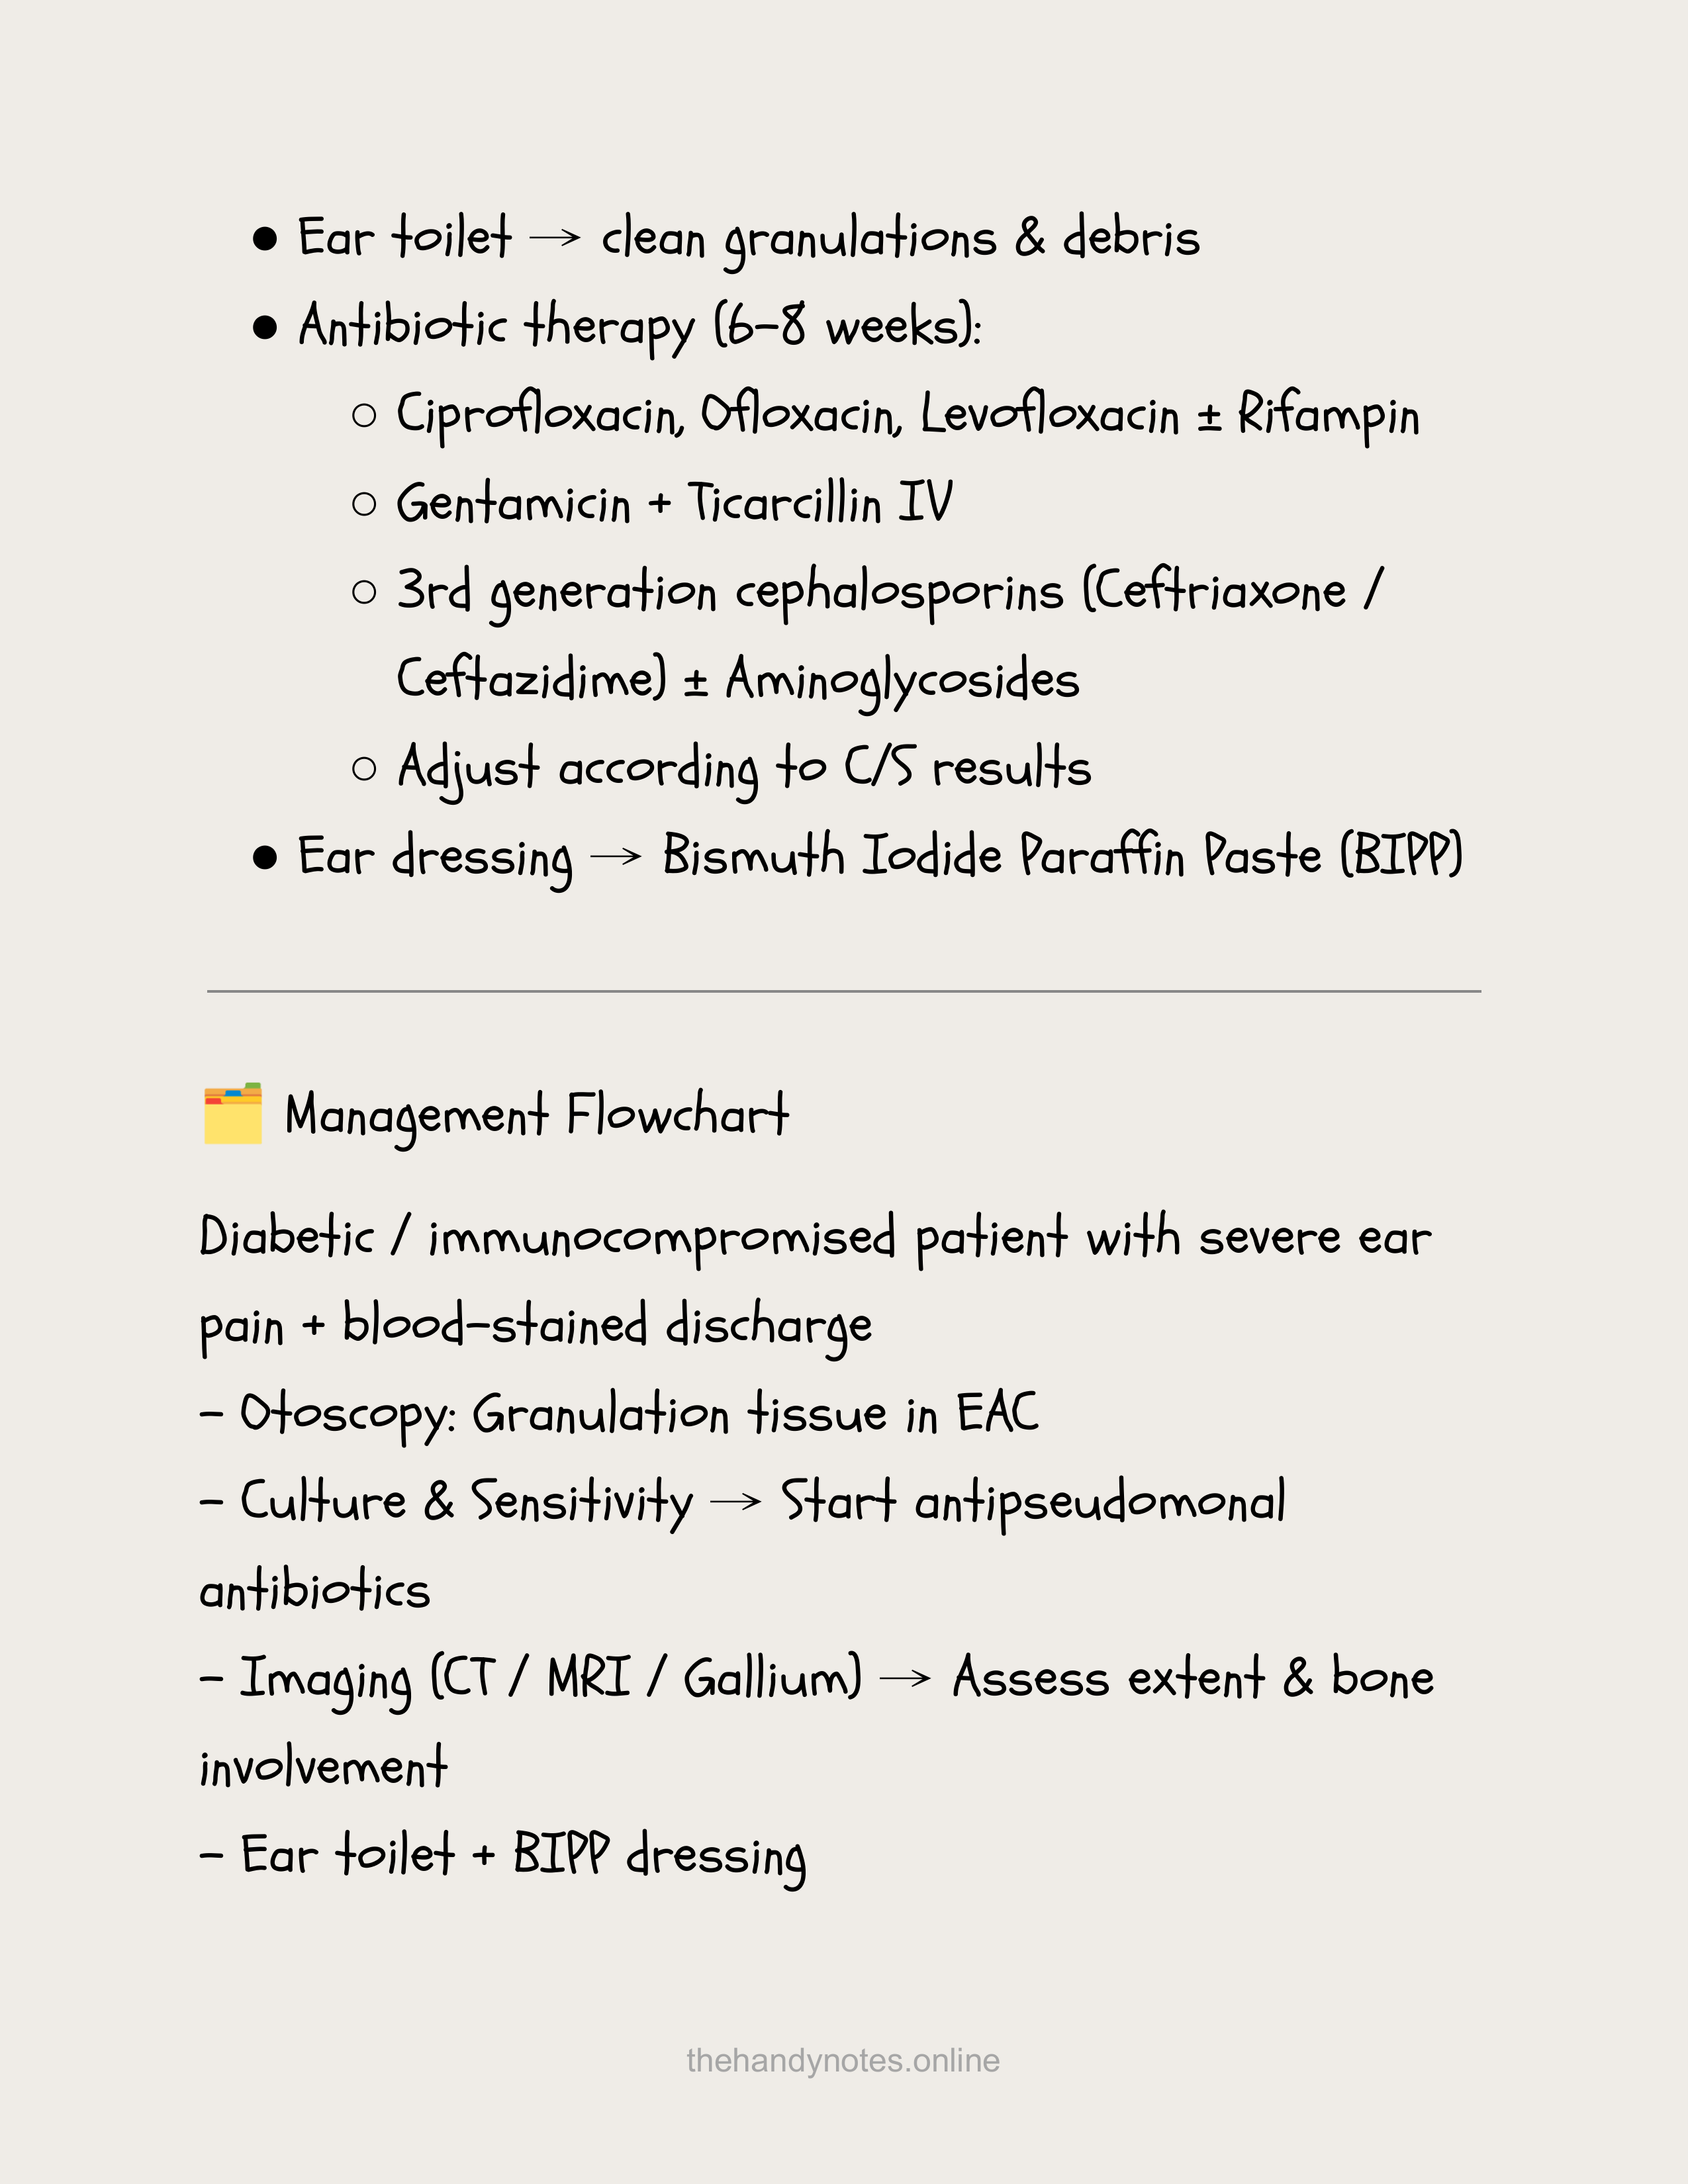 ● Ear toilet → clean granulations & debris
● Antibiotic therapy (6–8 weeks):
○ Ciprofloxacin, Ofloxacin, Levofloxacin ± Rifampin
○ Gentamicin + Ticarcillin IV
○ 3rd generation cephalosporins (Ceftriaxone /
Ceftazidime) ± Aminoglycosides
○ Adjust according to C/S results
● Ear dressing → Bismuth Iodide Paraffin Paste (BIPP)
🗂️ Management Flowchart
Diabetic / immunocompromised patient with severe ear
pain + blood-stained discharge
– Otoscopy: Granulation tissue in EAC
– Culture & Sensitivity → Start antipseudomonal
antibiotics
– Imaging (CT / MRI / Gallium) → Assess extent & bone
involvement
– Ear toilet + BIPP dressing
thehandynotes.online